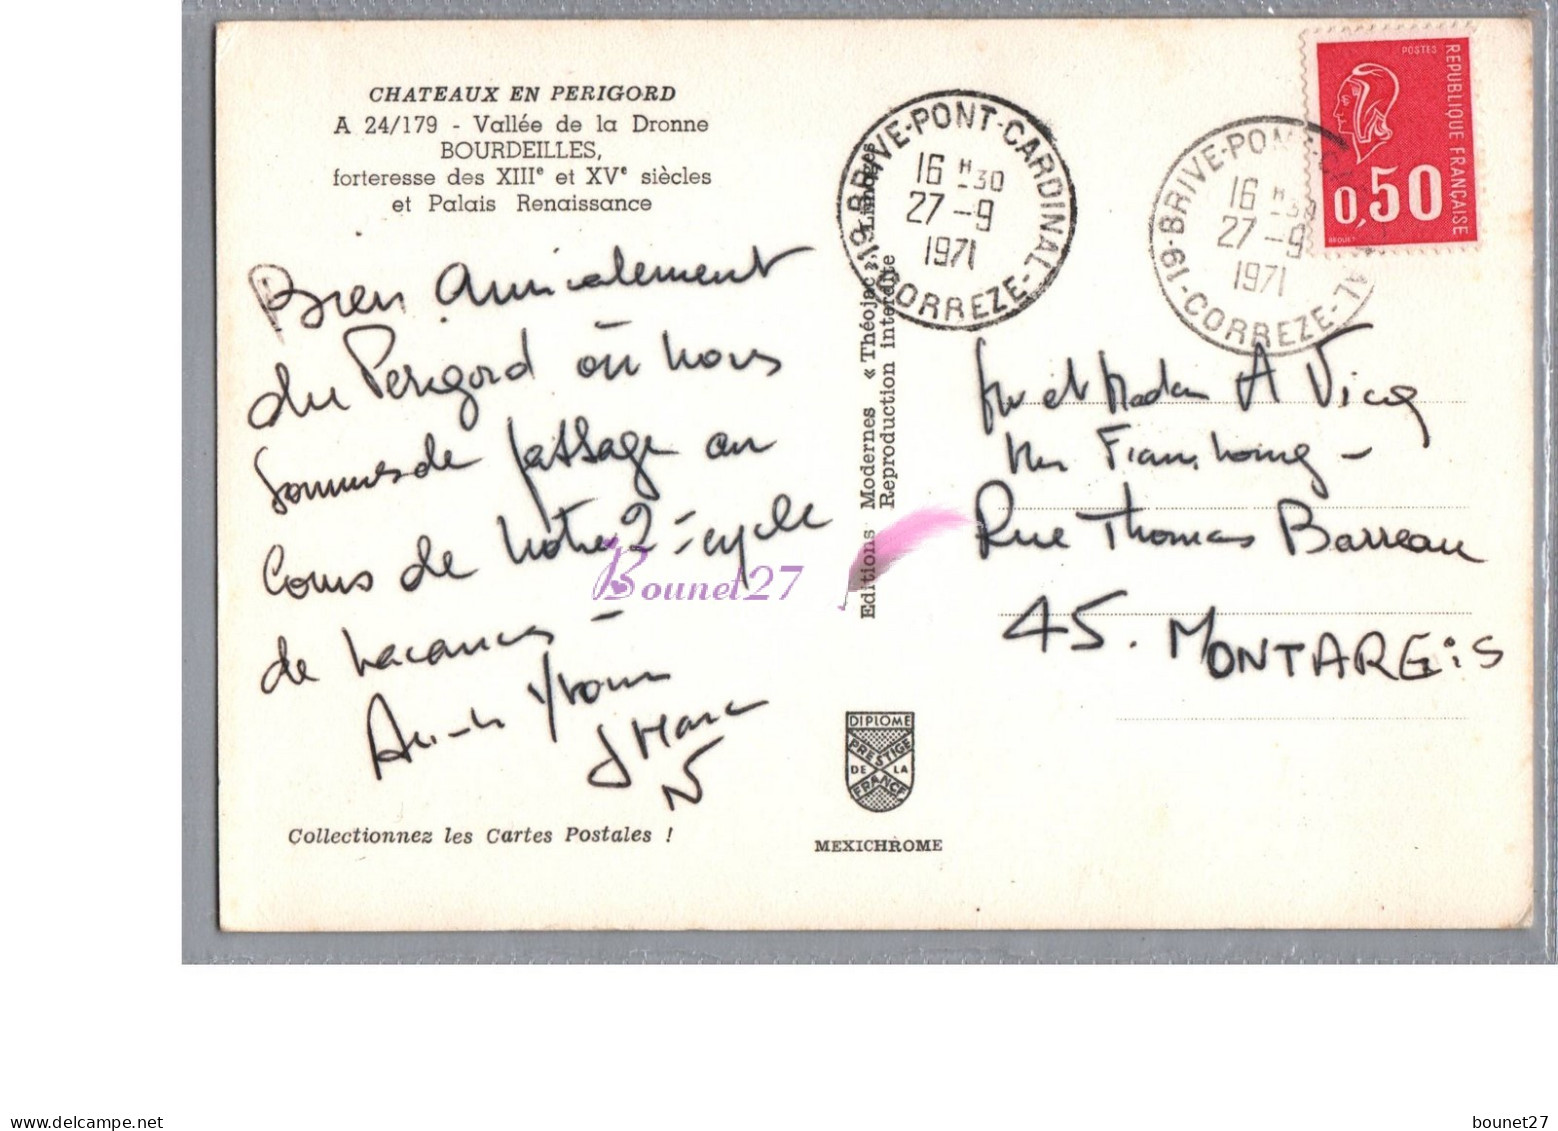 CHATEAUX EN PERIGORD
A 24/179 - Vallée de la Dronne
BOURDEILLES,
forteresse des XIIIe et XVe siècles
et Palais Renaissance
Bien amicalement
du Perigord où nous
sommes de passage au
cours de notre 2e cycle
de vacances -
Yvonne
J Marc
N
Collectionnez les Cartes Postales !
Editions Modernes « Théojac », Limoges
Reproduction interdite
DIPLOME
PRESTIGE
DE LA
FRANCE
MEXICHROME
19-BRIVE-PONT-CARDINAL-CORREZE-
16 H 30
27-9
1971
19-BRIVE-PONT-CARDINAL-CORREZE-
16 H 30
27-9
1971
POSTES
REPUBLIQUE FRANÇAISE
0,50
et Madam A Vicq
Rue Thomas Barreau
45. MONTARGIS
Bounet27
www.delcampe.net
bounet27